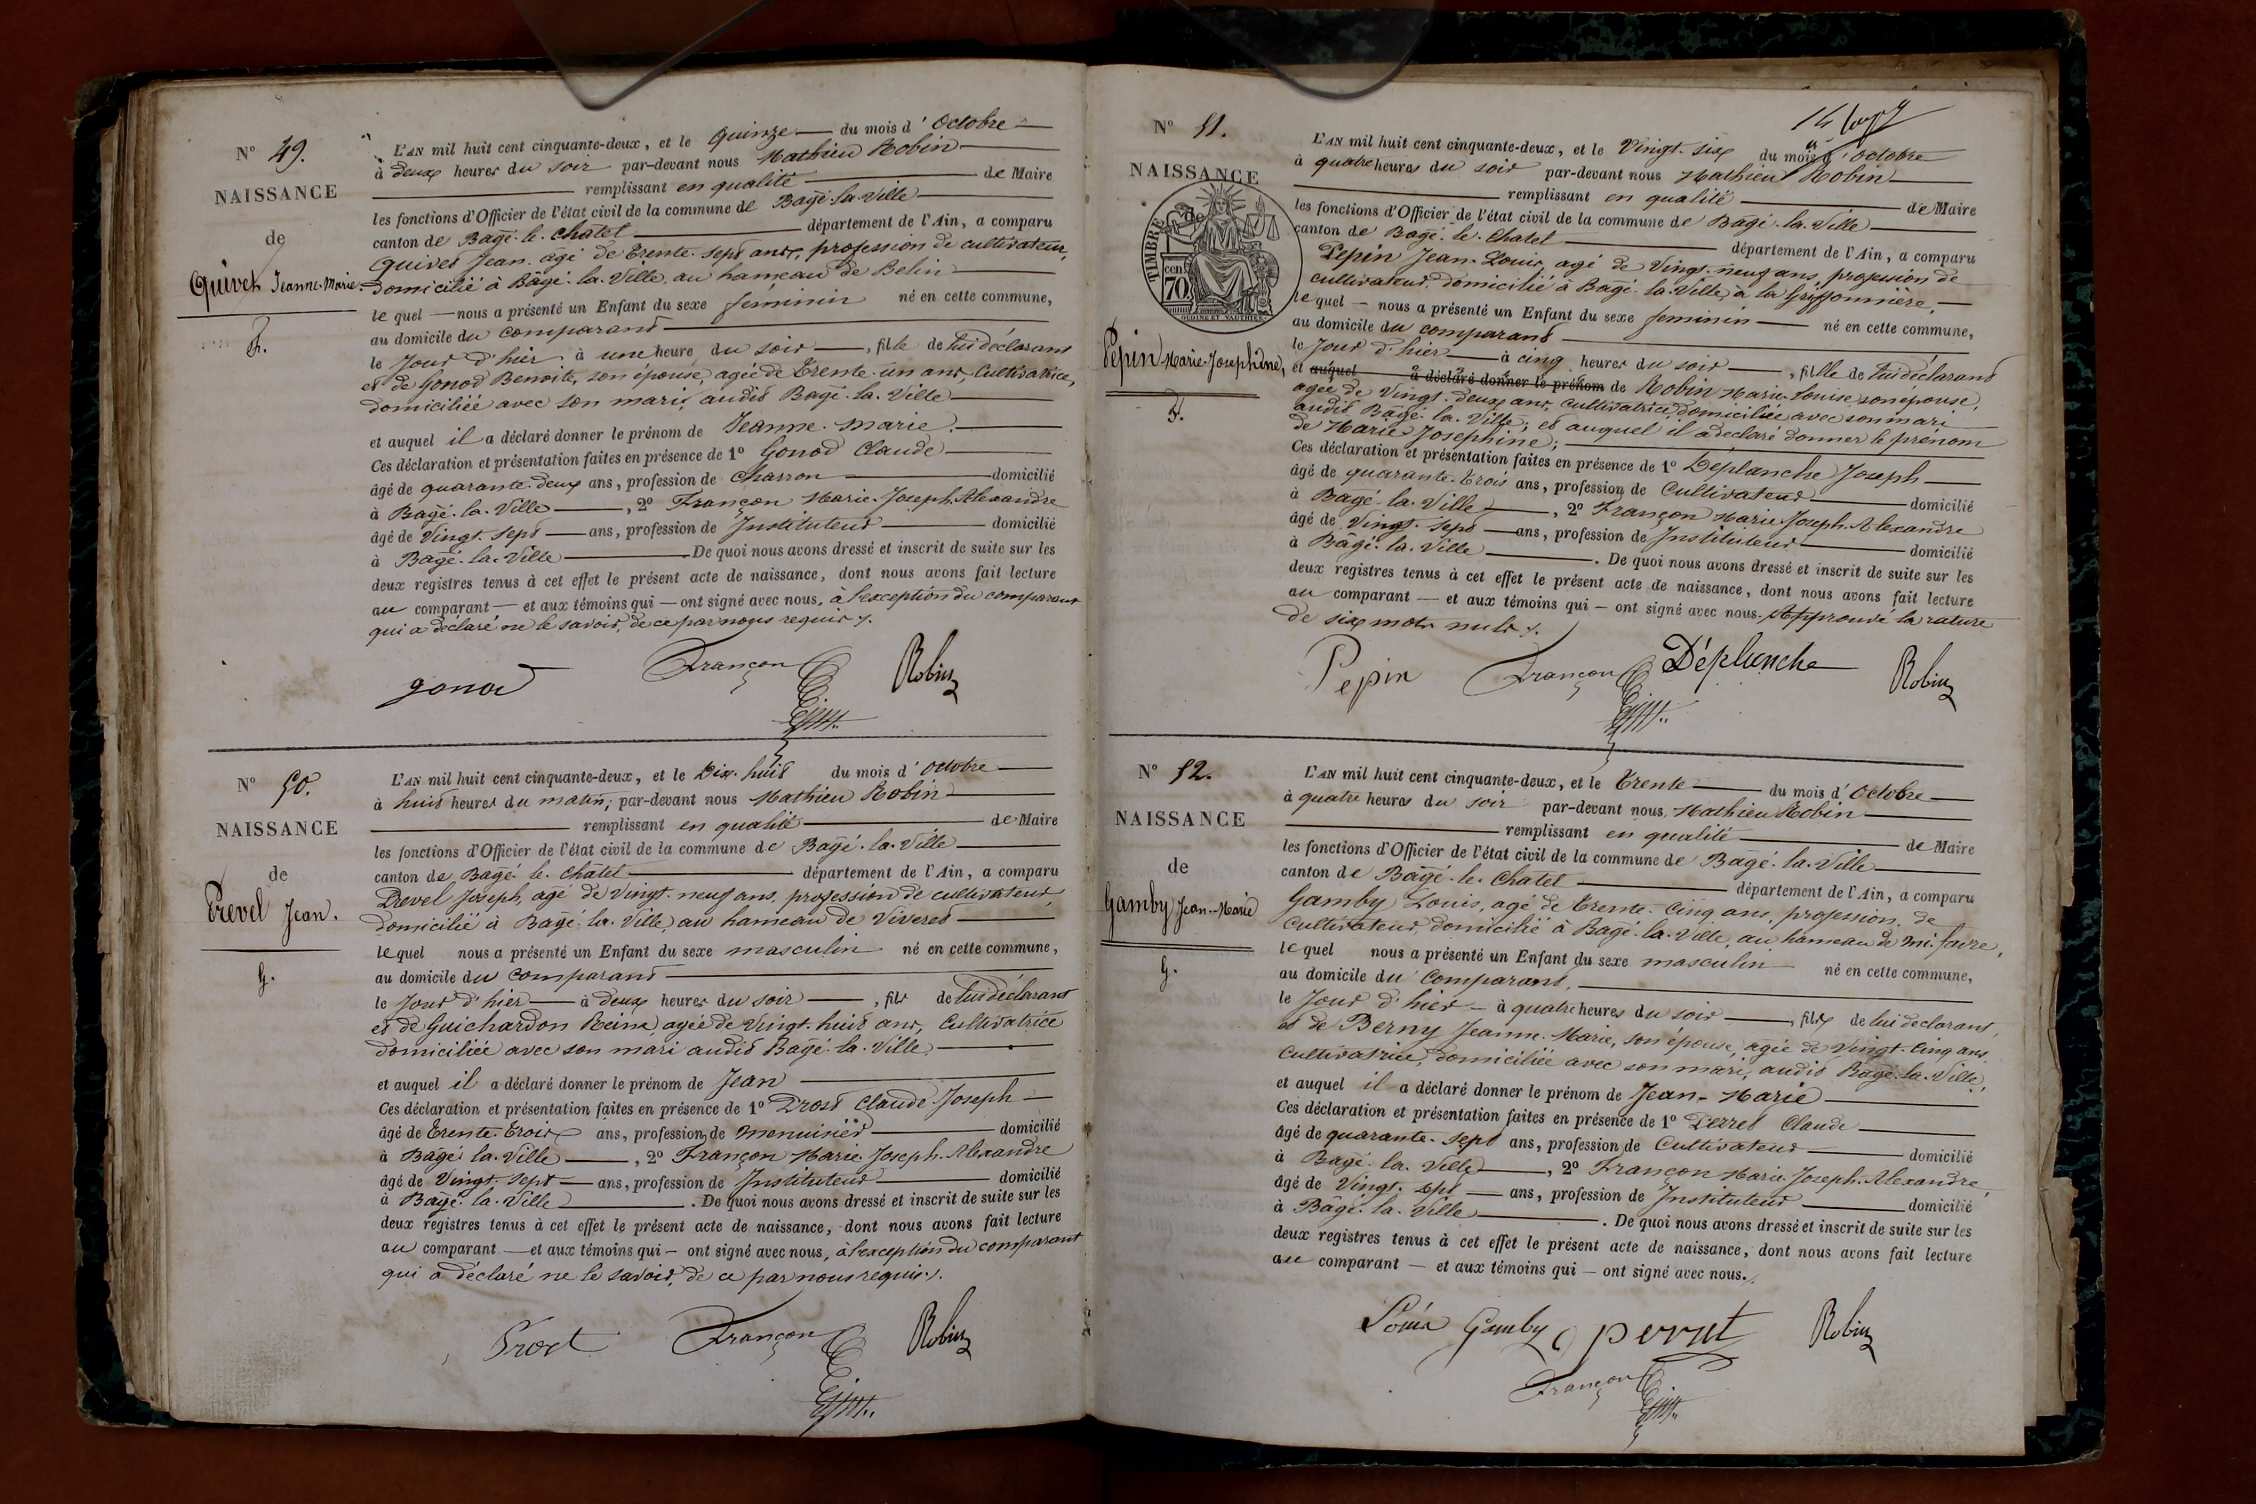 N° 49.
NAISSANCE
de
Quivet Jeanne-Marie.
F.
L'AN mil huit cent cinquante-deux, et le Quinze du mois d'Octobre
à deux heures du soir par-devant nous Mathieu Robin
remplissant en qualité de Maire
les fonctions d'Officier de l'état civil de la commune de Bagé-la-Ville
canton de Bagé-le-Chatel département de l'Ain, a comparu
Quivet Jean, agé de trente-sept ans, profession de cultivateur,
domicilié à Bâgé-la-Ville, au hameau de Belin
lequel nous a présenté un Enfant du sexe féminin né en cette commune,
au domicile du comparant
le Jour d'hier à une heure du soir, fille de lui déclarant
et de Gonod Benoite, son épouse, agée de trente-un ans, Cultivatrice,
domiciliée avec son mari, audit Bagé-la-Ville
et auquel il a déclaré donner le prénom de Jeanne-Marie.
Ces déclaration et présentation faites en présence de 1° Gonod Claude
âgé de quarante-deux ans, profession de Charron domicilié
à Bagé-la-Ville, 2° Françon Marie-Joseph-Alexandre
âgé de Vingt-sept ans, profession de Instituteur domicilié
à Bagé-la-Ville. De quoi nous avons dressé et inscrit de suite sur les
deux registres tenus à cet effet le présent acte de naissance, dont nous avons fait lecture
au comparant et aux témoins qui ont signé avec nous, à l'exception du comparant
qui a déclaré ne le savoir, de ce par nous requis.
gonod Françon Robin
N° 50.
NAISSANCE
de
Prevel Jean.
G.
L'AN mil huit cent cinquante-deux, et le Dix-huit du mois d'Octobre
à huit heures du matin, par-devant nous Mathieu Robin
remplissant en qualité de Maire
les fonctions d'Officier de l'état civil de la commune de Bagé-la-Ville
canton de Bagé-le-Châtel département de l'Ain, a comparu
Prevel Joseph, agé de Vingt-neuf ans, profession de cultivateur,
domicilié à Bagé-la-Ville, au hameau de Viveret
lequel nous a présenté un Enfant du sexe masculin né en cette commune,
au domicile du comparant
le Jour d'hier à deux heures du soir, fils de lui déclarant
et de Guichardon Reine, agée de Vingt-huit ans, Cultivatrice
domiciliée avec son mari audit Bagé-la-Ville,
et auquel il a déclaré donner le prénom de Jean
Ces déclaration et présentation faites en présence de 1° Prost Claude-Joseph
âgé de trente-trois ans, profession de menuisier domicilié
à Bagé-la-Ville, 2° Françon Marie-Joseph-Alexandre
âgé de Vingt-sept ans, profession de Instituteur domicilié
à Bagé-la-Ville. De quoi nous avons dressé et inscrit de suite sur les
deux registres tenus à cet effet le présent acte de naissance, dont nous avons fait lecture
au comparant et aux témoins qui ont signé avec nous, à l'exception du comparant
qui a déclaré ne le savoir, de ce par nous requis.
Prost Françon Robin
N° 51.
NAISSANCE
de
TIMBRE
cen.
70
Pepin Marie-Josephine,
F.
L'AN mil huit cent cinquante-deux, et le Vingt-six du mois d'Octobre
à quatre heures du soir par-devant nous Mathieu Robin
remplissant en qualité de Maire
les fonctions d'Officier de l'état civil de la commune de Bagé-la-Ville
canton de Bagé-le-Chatel département de l'Ain, a comparu
Pepin Jean-Louis, agé de Vingt-neuf ans, profession de
cultivateur, domicilié à Bagé-la-Ville, à la Griffonnière,
lequel nous a présenté un Enfant du sexe feminin né en cette commune,
au domicile du comparant
le Jour d'hier à cinq heures du soir, fille de lui déclarant
et auquel a déclaré donner le prénom de Robin Marie-Louise, son épouse,
agée de Vingt-deux ans, cultivatrice, domiciliée avec son mari
audit Bagé-la-Ville, et auquel il a déclaré donner le prénom
de Marie-Josephine;
Ces déclaration et présentation faites en présence de 1° Déplanche Joseph
âgé de quarante-trois ans, profession de Cultivateur domicilié
à Bagé-la-Ville, 2° Françon Marie-Joseph-Alexandre
âgé de Vingt-sept ans, profession de Instituteur domicilié
à Bâgé-la-Ville. De quoi nous avons dressé et inscrit de suite sur les
deux registres tenus à cet effet le présent acte de naissance, dont nous avons fait lecture
au comparant et aux témoins qui ont signé avec nous. Approuvé la rature
de six mots nuls.
Pepin Françon Déplanche Robin
N° 52.
NAISSANCE
de
Gamby Jean-Marie
G.
L'AN mil huit cent cinquante-deux, et le trente du mois d'Octobre
à quatre heures du soir par-devant nous Mathieu Robin
remplissant en qualité de Maire
les fonctions d'Officier de l'état civil de la commune de Bagé-la-Ville
canton de Bâgé-le-Chatel département de l'Ain, a comparu
Gamby Louis, agé de trente-cinq ans, profession de
Cultivateur, domicilié à Bagé-la-Ville, au hameau de Mi-faire,
lequel nous a présenté un Enfant du sexe masculin né en cette commune,
au domicile du Comparant,
le Jour d'hier à quatre heures du soir, fils de lui declarant,
et de Berny Jeanne-Marie, son épouse, agée de Vingt-cinq ans,
Cultivatrice, domiciliée avec son mari, audit Bagé-la-Ville,
et auquel il a déclaré donner le prénom de Jean-Marie
Ces déclaration et présentation faites en présence de 1° Perret Claude
âgé de quarante-sept ans, profession de Cultivateur domicilié
à Bagé-la-Ville, 2° Françon Marie-Joseph-Alexandre,
âgé de Vingt-sept ans, profession de Instituteur domicilié
à Bâgé-la-Ville. De quoi nous avons dressé et inscrit de suite sur les
deux registres tenus à cet effet le présent acte de naissance, dont nous avons fait lecture
au comparant et aux témoins qui ont signé avec nous.
Louis Gamby perret Robin
Françon